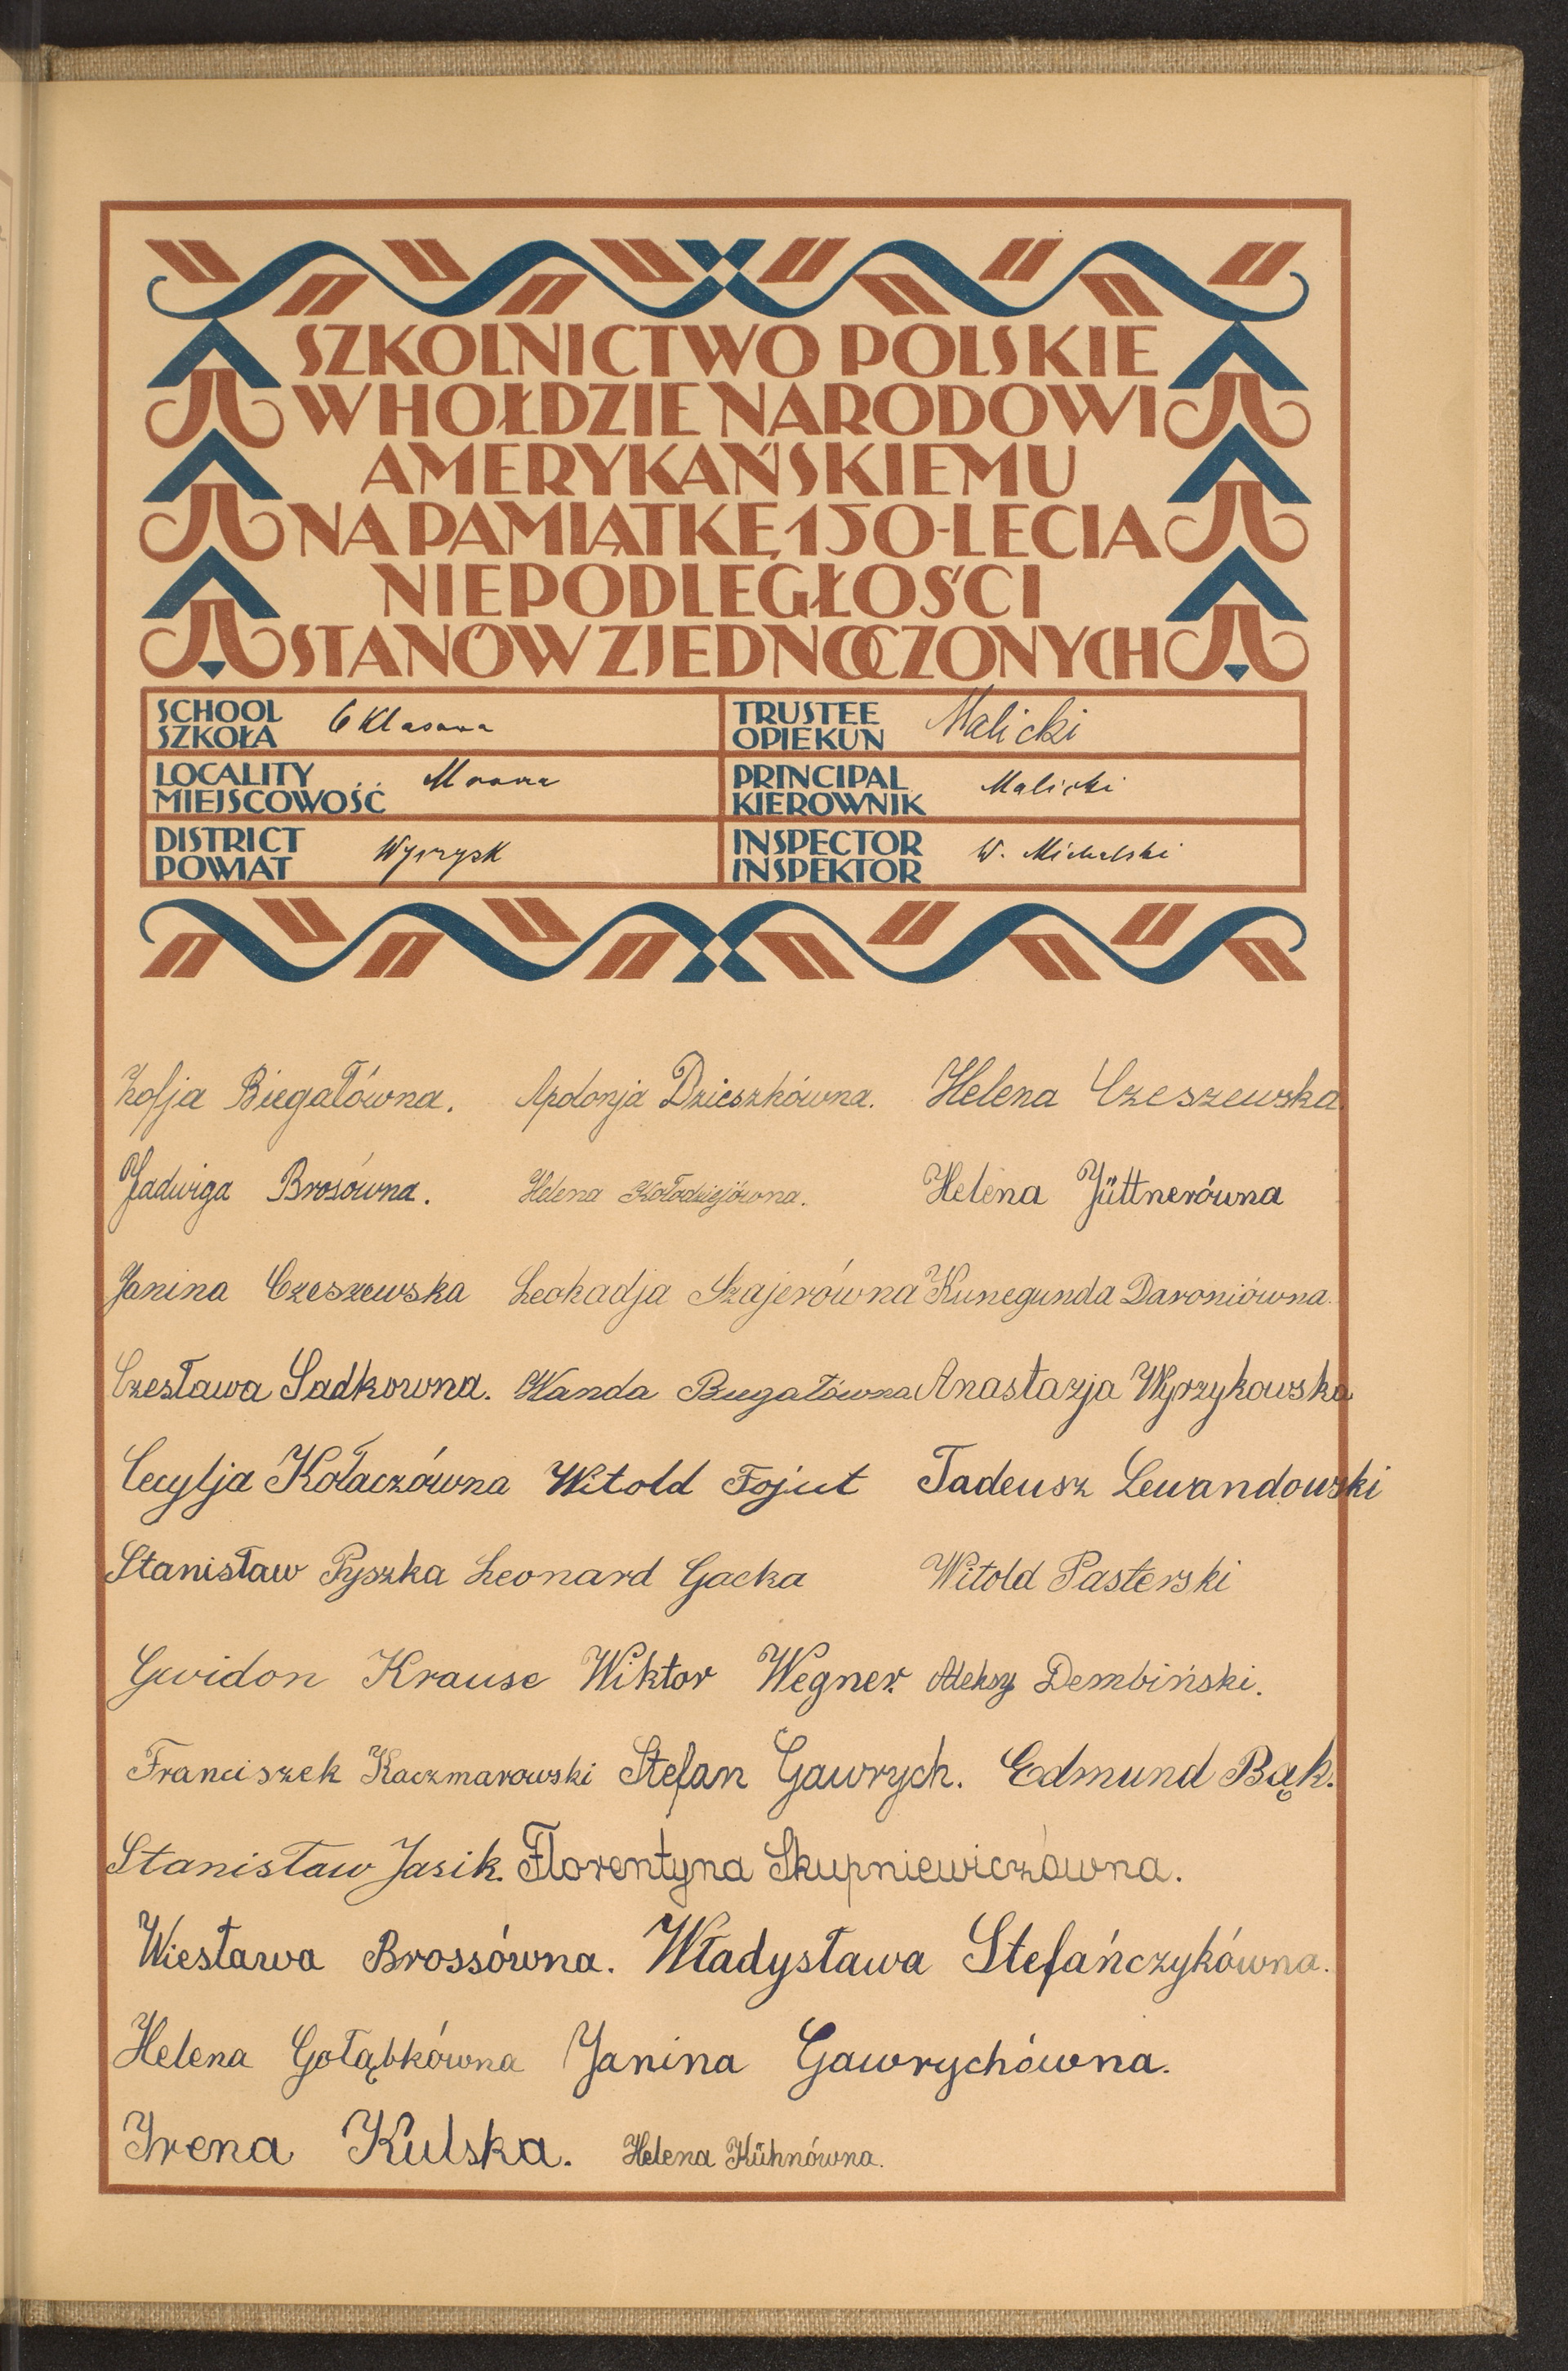 SZKOLNICTWO POLSKIE
W HOŁDZIE NARODOWI
AMERYKAŃSKIEMU
NA PAMIĄTKĘ 150-LECIA
NIEPODLEGŁOŚCI
STANÓW ZJEDNOCZONYCH
SCHOOL
SZKOŁA
6 Klasowa
TRUSTEE
OPIEKUN
Malicki
LOCALITY
MIEJSCOWOŚĆ
PRINCIPAL
KIEROWNIK
Malicki
DISTRICT
POWIAT
Wyrzysk
INSPECTOR
INSPEKTOR
W. Michalski
Zofja Biegałówna. Apolonja Dzieszkówna. Helena Czeszewska.
Jadwiga Brosówna. Helena Kołodziejówna. Helena Jüttnerówna
Janina Czeszewska Leokadja Szajerówna Kunegunda Daroniówna.
Czesława Sadkowna. Wanda Biegałówna Anastazja Wyrzykowska
Cecylja Kołaczówna Witold Fojut Tadeusz Lewandowski
Stanisław Pyszka Leonard Gacka Witold Pasterski
Gwidon Krause Wiktor Wegner. Aleksy Dembiński.
Franciszek Kaczmarowski Stefan Gawrych. Edmund Bąk.
Stanisław Jasik. Florentyna Skupniewiczówna.
Wiesława Brossówna. Władysława Stefańczykówna.
Helena Gołąbkówna Janina Gawrychówna.
Irena Kulska. Helena Kühnówna.